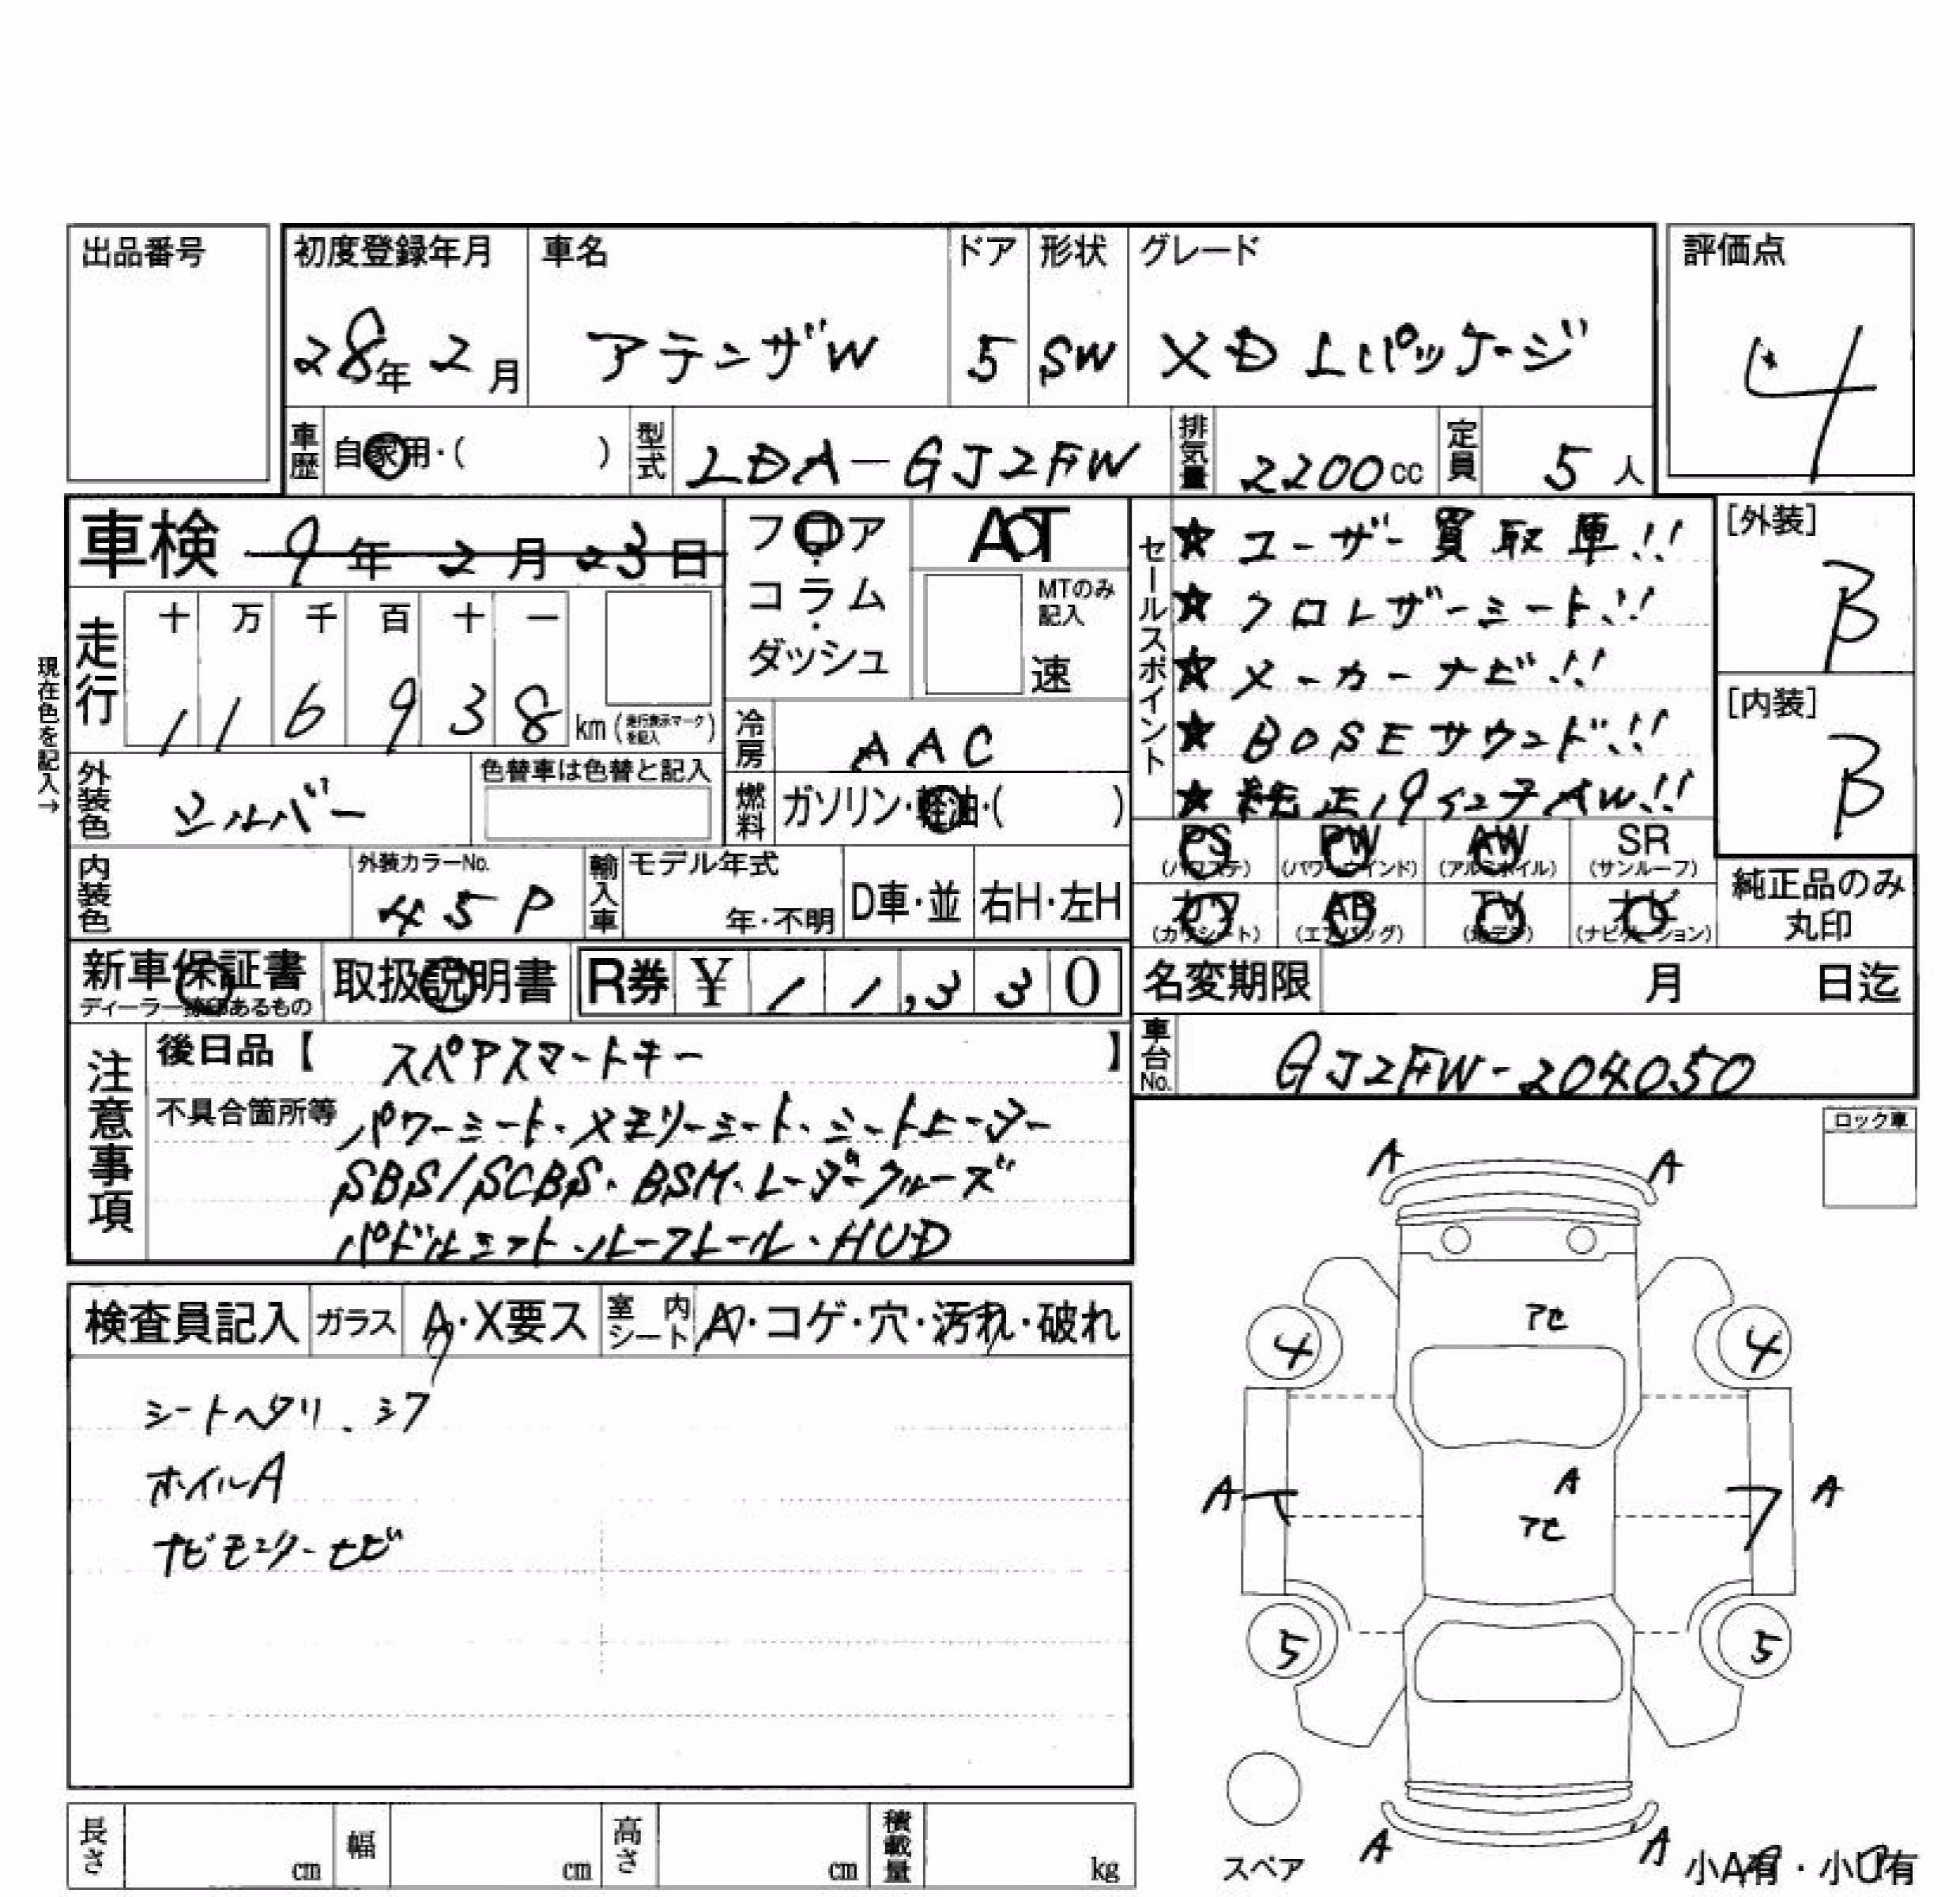 出品番号
初度登録年月 車名 ドア 形状 グレード 評価点
28年 2月 アテンザW 5 SW XD Lパッケージ 4
車歴 自家用・( ) 型式 LDA-GJ2FW 排気量 2200cc 定員 5人
車検 9年 2月 23日
フロア
コラム
ダッシュ
AT
MTのみ記入
速
セールスポイント
★ユーザー買取車!!
★クロレザーシート!!
★メーカーナビ!!
★BOSEサウンド!!
★純正19インチAW!!
[外装]
B
[内装]
B
現在色を記入→
走行 十 万 千 百 十 一
1 1 6 9 3 8 km (走行表示マークを記入)
冷房 AAC
外装色 シルバー 色替車は色替と記入
燃料 ガソリン・軽油・( )
PS (パワステ) PW (パワーウインド) AW (アルミホイル) SR (サンルーフ)
カワ (カワシート) AB (エアバッグ) TV (地デジ) ナビ (ナビゲーション)
純正品のみ丸印
内装色 外装カラーNo. 45P 輸入車 モデル年式 年・不明 D車・並 右H・左H
新車保証書 取扱説明書 R券 ¥ 11,330
名変期限 月 日迄
車台No. GJ2FW-204050
注意事項
後日品【 スペアスマートキー 】
不具合箇所等 パワーシート・メモリーシート・シートヒーター
SBS/SCBS・BSM・レーダークルーズ
パドルシフト・ルーフレール・HUD
ロック車
検査員記入 ガラス A・X要ス 室内シート A・コゲ・穴・汚れ・破れ
シートヘタリ、シワ
ホイルA
ナビモニター七ビ
A A
アセ
4 4
A A A
アセ
5 5
A A
スペア
小A有・小U有
長さ cm 幅 cm 高さ cm 積載量 kg